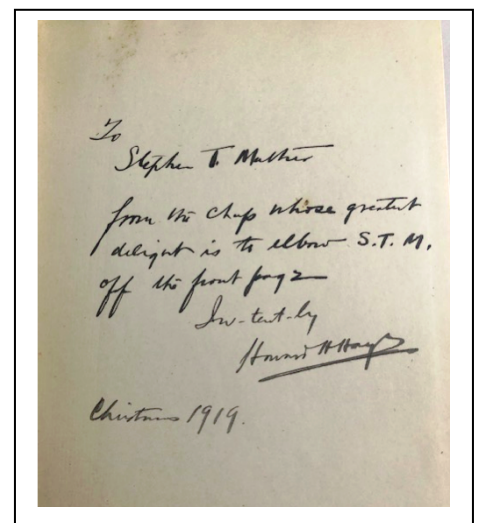 To
Stephen T. Mather
from the chap whose greatest
delight is to elbow S.T.M.
off the front page
In-tent-ly
Howard H Hays
Christmas 1919.